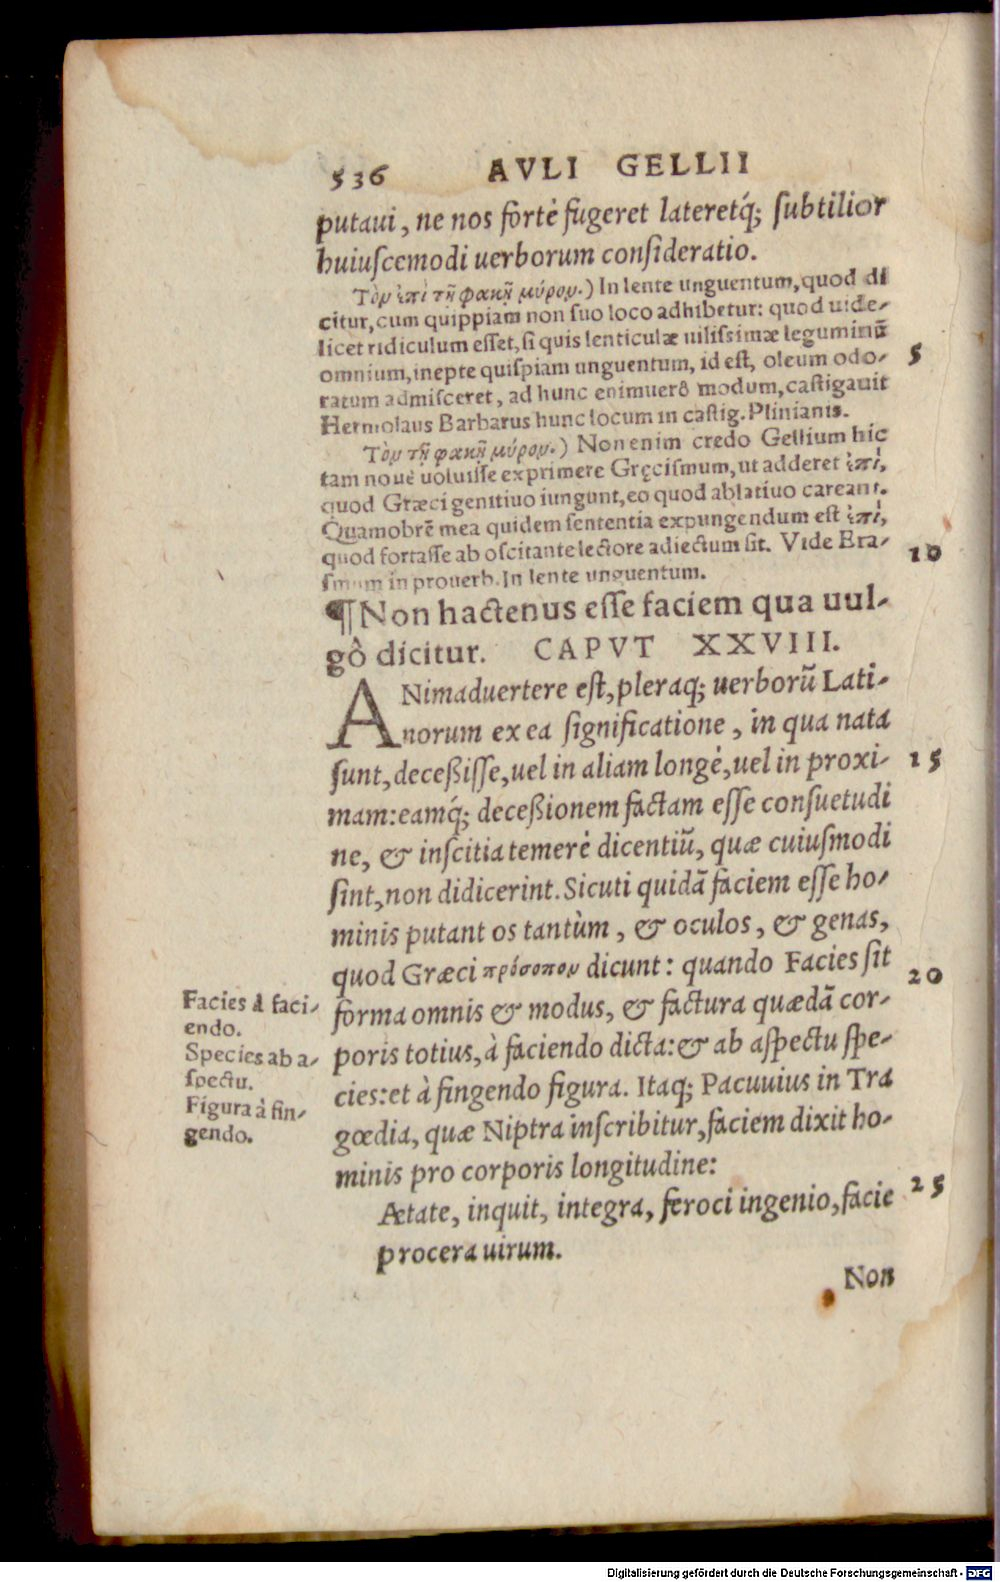 536 AVLI GELLII
putaui, ne nos fortè fugeret lateretq́; subtilior
huiuscemodi uerborum consideratio.
Τὸμ ἐπὶ τῇ φακῇ μύρομ.) In lente unguentum, quod di
citur, cum quippiam non suo loco adhibetur: quod uide-
licet ridiculum esset, si quis lenticulæ uilissimæ leguminũ
omnium, inepte quispiam unguentum, id est, oleum odo-
ratum admisceret, ad hunc enimuerò modum, castigauit
Hermolaus Barbarus hunc locum in castig. Plinianis.
Τὸμ τῇ φακῇ μύρομ.) Non enim credo Gellium hic
tam nouè uoluisse exprimere Gręcismum, ut adderet ἐπὶ,
quod Græci genitiuo iungunt, eo quod ablatiuo careant.
Quamobrẽ mea quidem sententia expungendum est ἐπὶ,
quod fortasse ab oscitante lectore adiectum sit. Vide Era-
smum in prouerb. In lente unguentum.
¶Non hactenus esse faciem qua uul-
gò dicitur. CAPVT XXVIII.
ANimaduertere est, pleraq; uerborũ Lati-
norum ex ea significatione, in qua nata
sunt, deceßisse, uel in aliam longè, uel in proxi-
mam: eamq́; deceßionem factam esse consuetudi
ne, & inscitia temerè dicentiũ, quæ cuiusmodi
sint, non didicerint. Sicuti quidã faciem esse ho-
minis putant os tantùm, & oculos, & genas,
quod Græci πρόσοπομ dicunt: quando Facies sit
forma omnis & modus, & factura quædã cor-
poris totius, à faciendo dicta: & ab aspectu spe-
cies: et à fingendo figura. Itaq; Pacuuius in Tra
gœdia, quæ Niptra inscribitur, faciem dixit ho-
minis pro corporis longitudine:
Aetate, inquit, integra, feroci ingenio, facie
procera uirum.
Non
Facies à faci-
endo.
Species ab a-
spectu.
Figura à fin-
gendo.
5
10
15
20
25
Digitalisierung gefördert durch die Deutsche Forschungsgemeinschaft - DFG